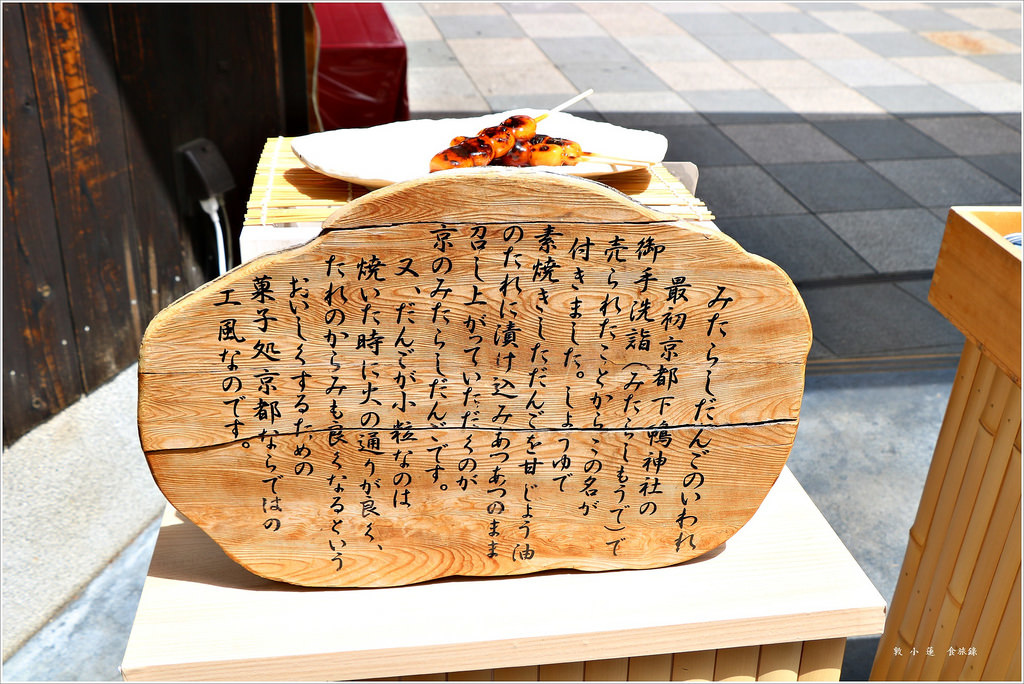 みたらしだんごのいわれ
最初京都下鴨神社の
御手洗詣(みたらしもうで)で
売られたことからこの名が
付きました。しょうゆで
素焼きしただんごを甘じょう油
のたれに漬け込みあつあつのまま
召し上がっていただくのが
京のみたらしだんごです。
又、だんごが小粒なのは
焼いた時に火の通りが良く、
たれのからみも良くなるという
おいしくするための
菓子処京都ならではの
工風なのです。
敦小蓮 食旅錄